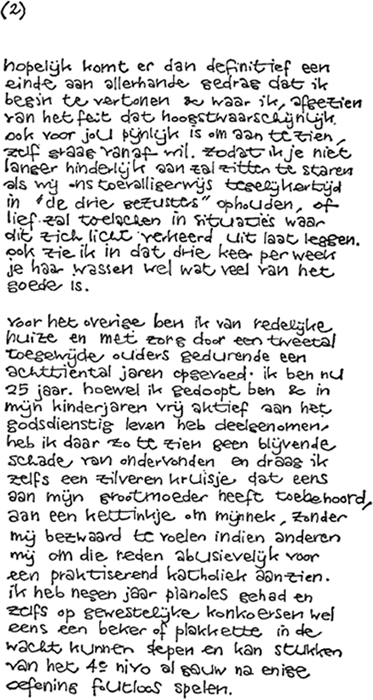 (2)
hopelijk komt er dan definitief een
einde aan allerhande gedrag dat ik
begin te vertonen & waar ik, afgezien
van het feit dat hoogstwaarschijnlijk
ook voor jou pijnlijk is om aan te zien,
zelf graag vanaf wil. zodat ik je niet
langer hinderlijk aan zal zitten te staren
als wij ons toevalligerwijs tegelijkertijd
in "de drie gezusters" ophouden, of
lief zal toelachen in situaties waar
dit zich licht verkeerd uit laat leggen.
ook zie ik in dat drie keer per week
je haar wassen wel wat veel van het
goede is.
voor het overige ben ik van redelijke
huize en met zorg door een tweetal
toegewijde ouders gedurende een
achttiental jaren opgevoed. ik ben nu
25 jaar. hoewel ik gedoopt ben & in
mijn kinderjaren vrij aktief aan het
godsdienstig leven heb deelgenomen,
heb ik daar zo te zien geen blijvende
schade van ondervonden en draag ik
zelfs een zilveren kruisje dat eens
aan mijn grootmoeder heeft toebehoord,
aan een kettinkje om mijn nek, zonder
mij bezwaard te voelen indien anderen
mij om die reden abusievelijk voor
een praktiserend katholiek aanzien.
ik heb negen jaar pianoles gehad en
zelfs op gewestelijke konkoersen wel
eens een beker of plakkette in de
wacht kunnen slepen en kan stukken
van het 4e nivo al gauw na enige
oefening foutloos spelen.